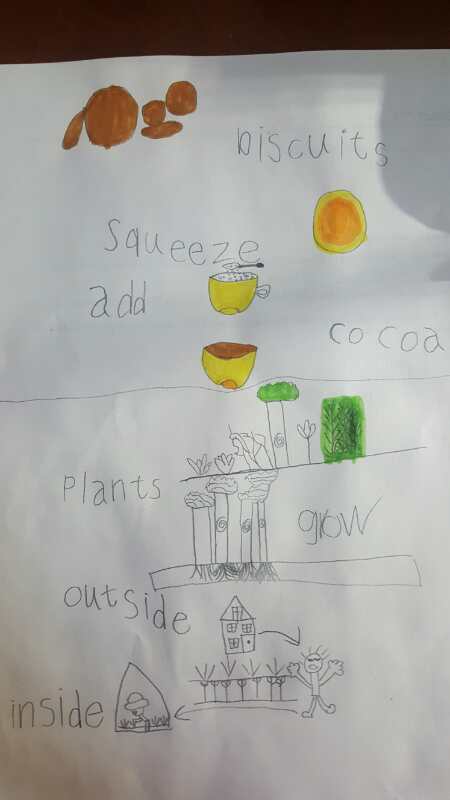 biscuits
squeeze
add
cocoa
Plants
grow
outside
inside